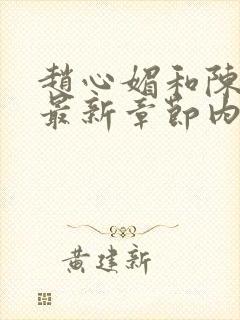 趙心媚和陳
最新章節內
黃建新